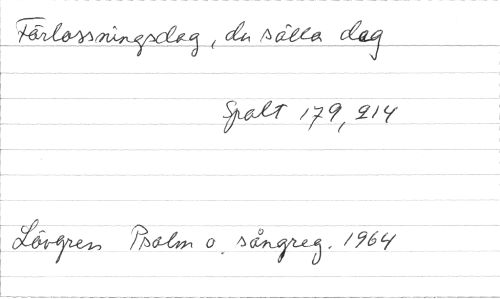 Förlossningsdag, du sälla dag
Spalt 179, 214
Lövgren Psalm o. sångreg. 1964